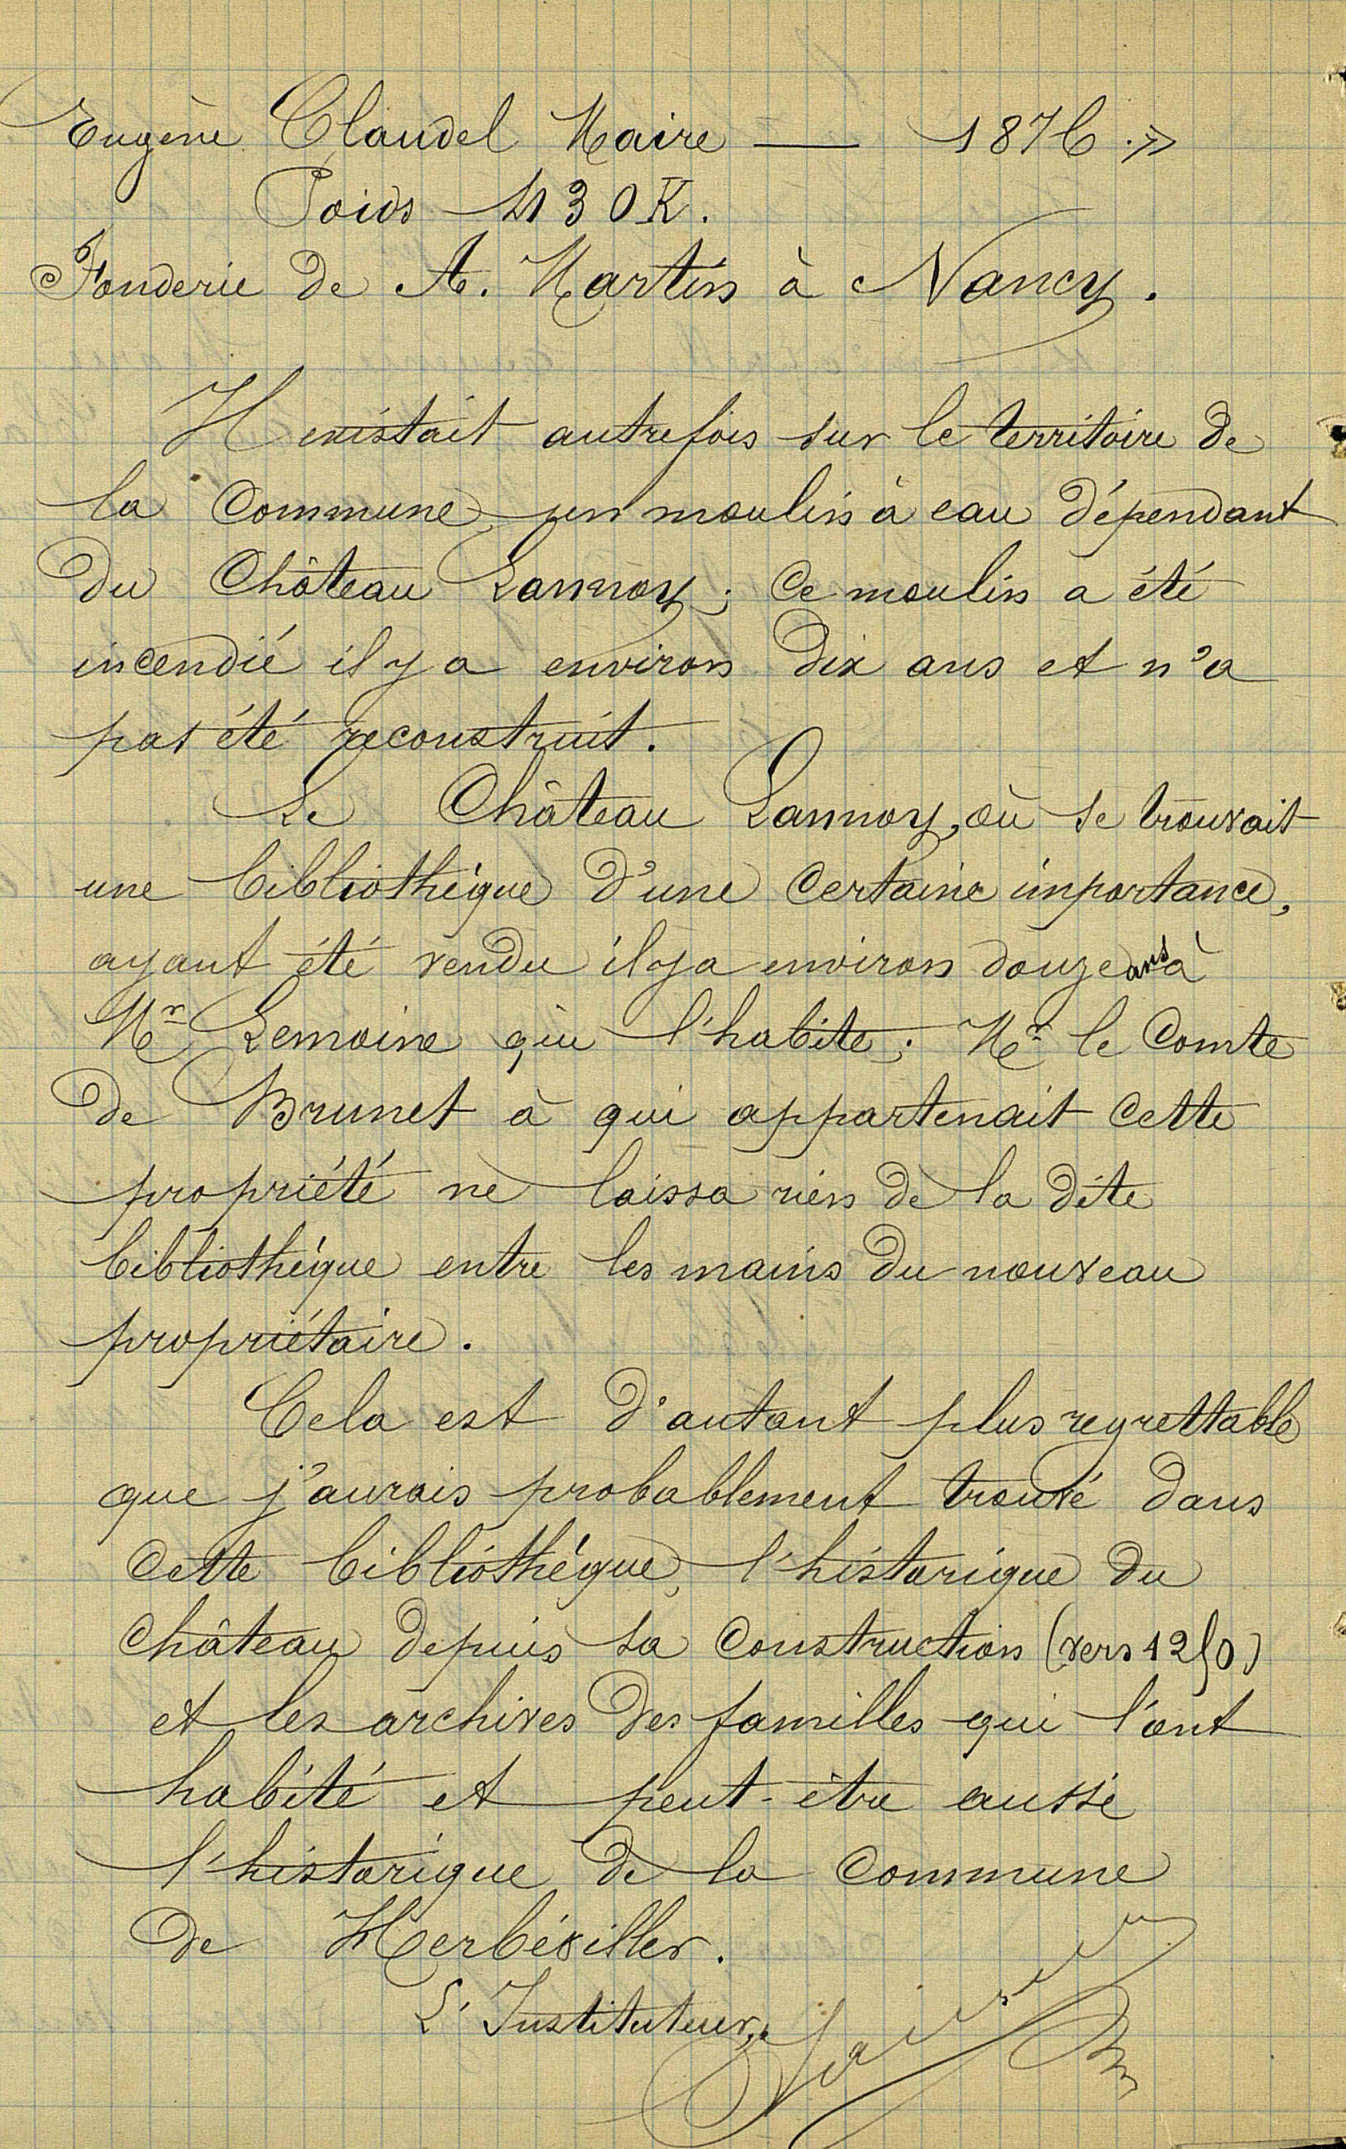 Eugène Claudel Maire — 1876 . »
Poids 430 K.
Fonderie de A. Martin à Nancy.
Il existait autrefois sur le territoire de
la commune, un moulin à eau dépendant
du Château Lannoy ; ce moulin a été
incendié il y a environ dix ans et n'a
pas été reconstruit.
Le Château Lannoy, où se trouvait
une bibliothèque d'une certaine importance,
ayant été vendu il y a environ douze ans à
Mr Lemoine qui l'habite ; Mr le Comte
de Brunet à qui appartenait cette
propriété ne laissa rien de la dite
bibliothèque entre les mains du nouveau
propriétaire.
Cela est d'autant plus regrettable
que j'aurais probablement trouvé dans
cette bibliothèque, l'historique du
château depuis sa construction (vers 1250)
et les archives des familles qui l'ont
habité et peut-être aussi
l'historique de la commune
de Herbéviller.
L'Instituteur,